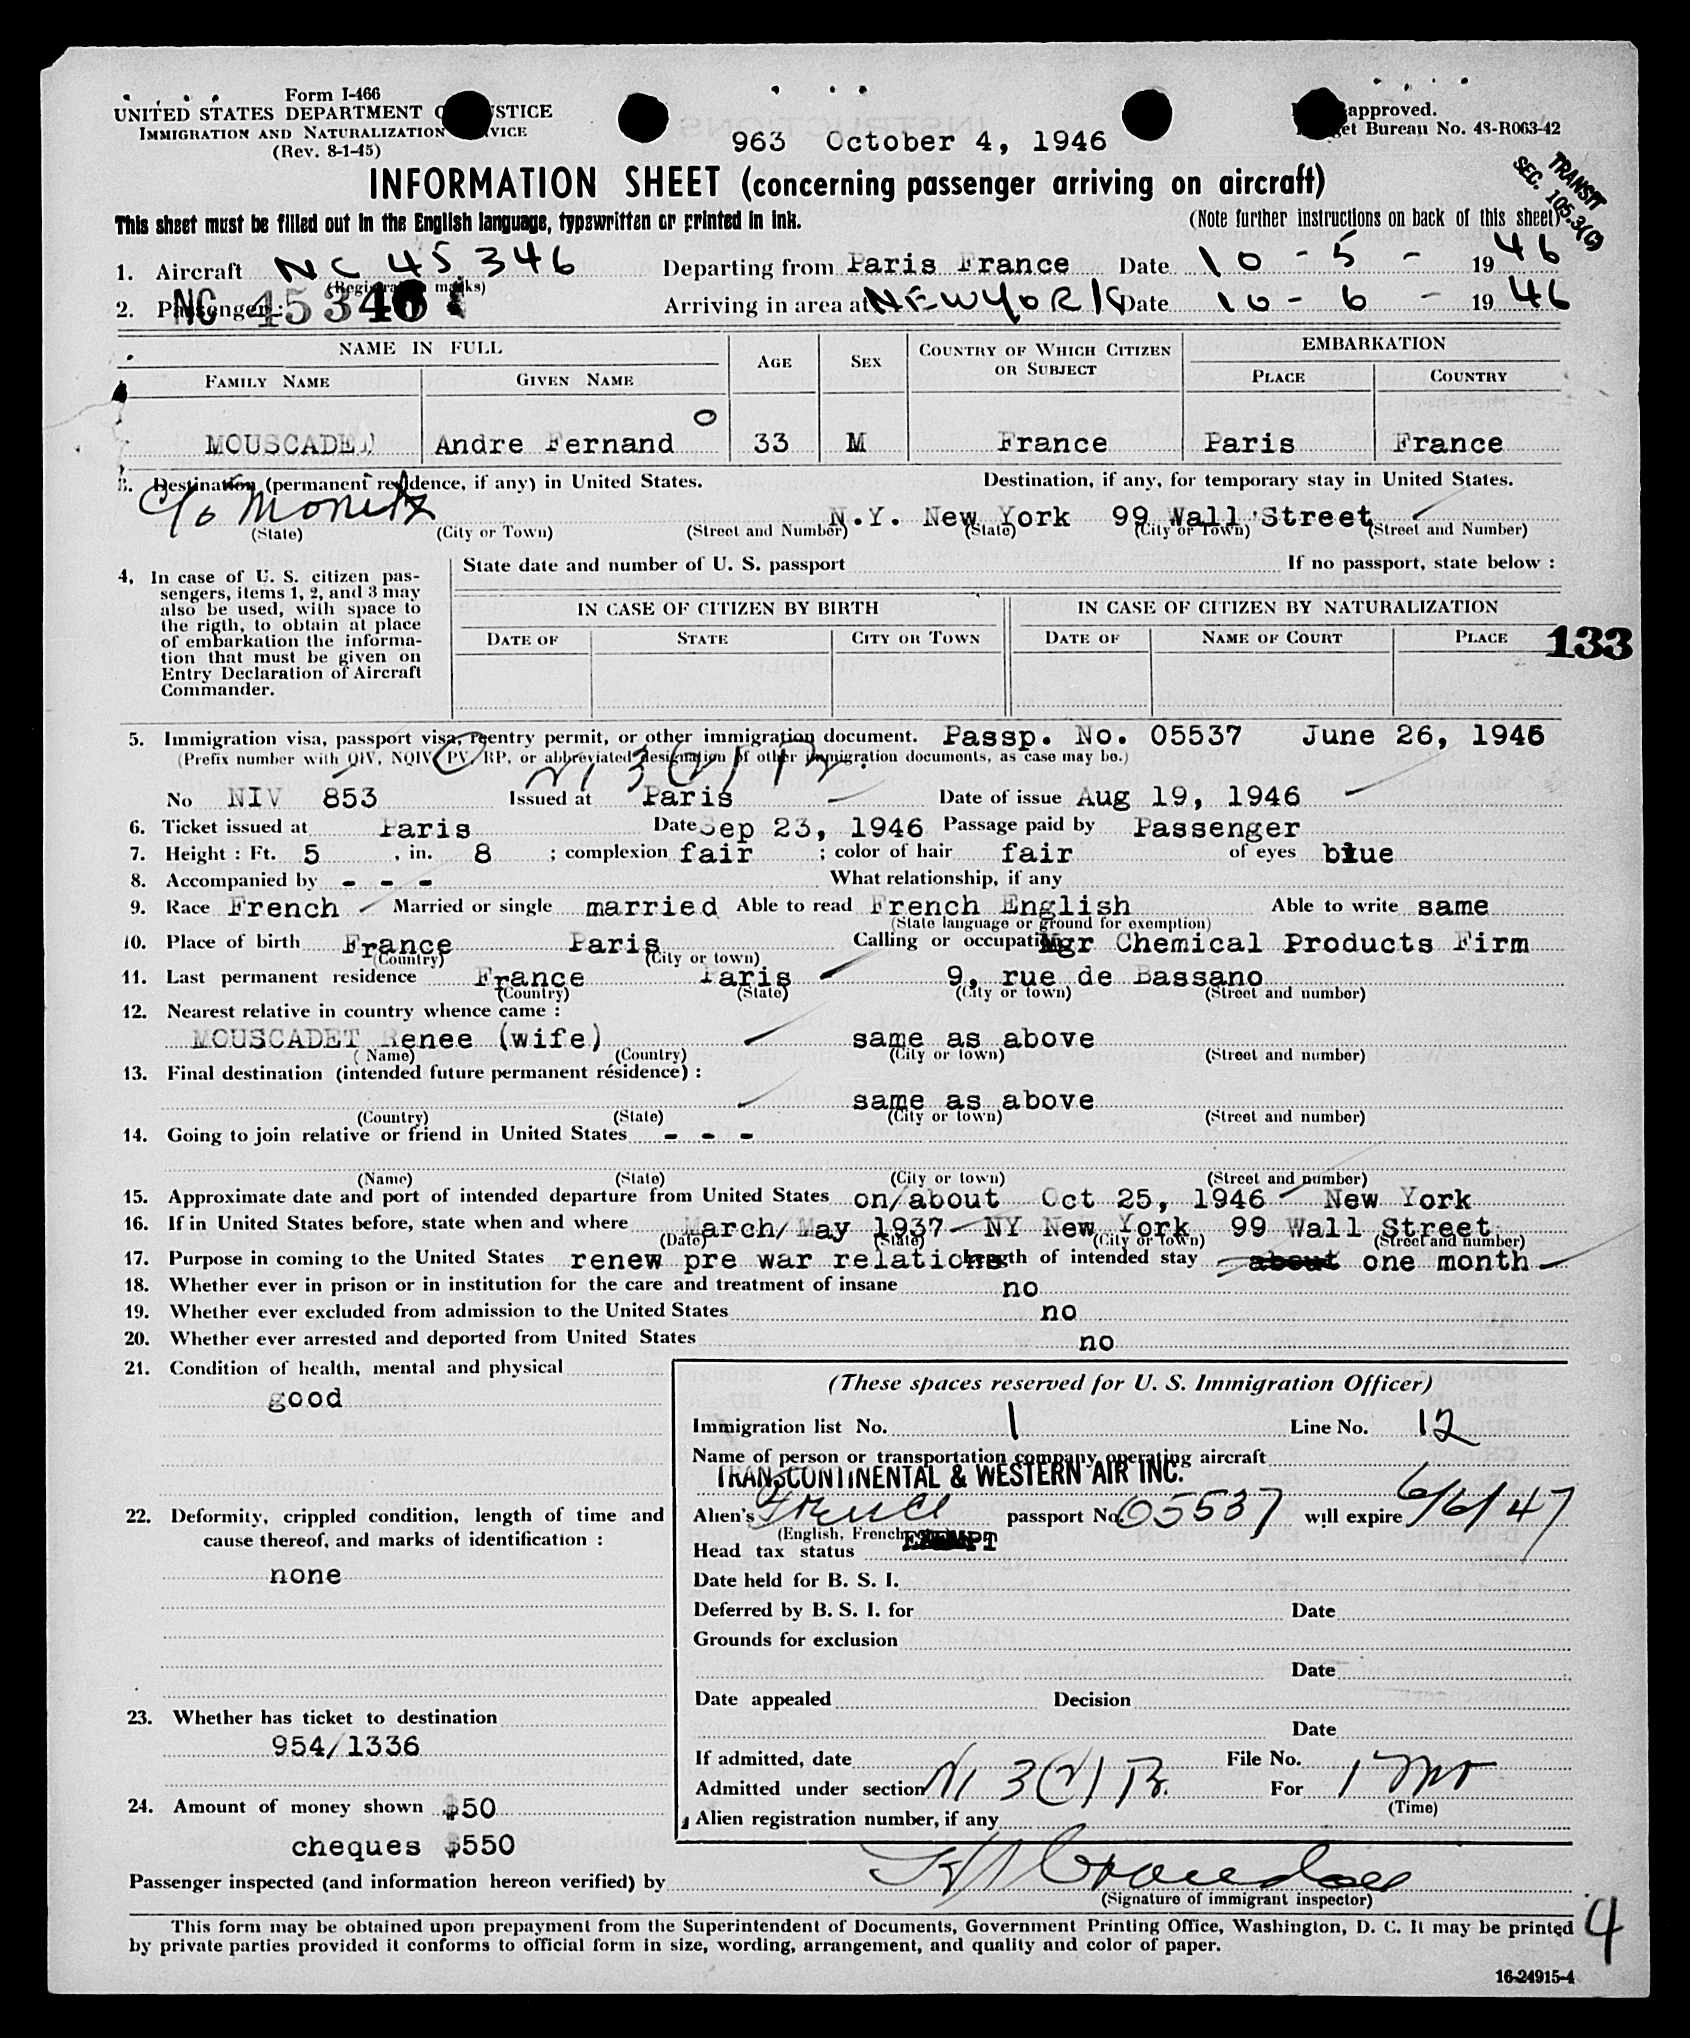 Form I-466
UNITED STATES DEPARTMENT OF JUSTICE
IMMIGRATION AND NATURALIZATION SERVICE
(Rev. 8-1-45)
Form approved.
Budget Bureau No. 43-R063-42
963 October 4, 1946
TRANSIT
SEC. 105.3(G)
INFORMATION SHEET (concerning passenger arriving on aircraft)
This sheet must be filled out in the English language, typewritten or printed in ink.
(Note further instructions on back of this sheet)
1. Aircraft NC 45346 Departing from Paris France Date 10-5-1946
(Registration marks)
2. Passenger: NC 45346 Arriving in area at NEW YORK Date 10-6-1946
NAME IN FULL AGE SEX COUNTRY OF WHICH CITIZEN OR SUBJECT EMBARKATION
FAMILY NAME GIVEN NAME PLACE COUNTRY
MOUSCADET Andre Fernand 33 M France Paris France
3. Destination (permanent residence, if any) in United States. Destination, if any, for temporary stay in United States.
c/o N.Y. New York 99 Wall Street
(State) (City or Town) (Street and Number) (State) (City or Town) (Street and Number)
4, In case of U. S. citizen pas-
sengers, items 1, 2, and 3 may
also be used, with space to
the rigth, to obtain at place
of embarkation the informa-
tion that must be given on
Entry Declaration of Aircraft
Commander.
State date and number of U. S. passport If no passport, state below :
IN CASE OF CITIZEN BY BIRTH IN CASE OF CITIZEN BY NATURALIZATION
DATE OF STATE CITY OR TOWN DATE OF NAME OF COURT PLACE
133
5. Immigration visa, passport visa, reentry permit, or other immigration document. Passp. No. 05537 June 26, 1946
(Prefix number with QIV, NQIV, PV, RP, or abbreviated designation of other immigration documents, as case may be.)
No NIV 853 Issued at Paris Date of issue Aug 19, 1946
6. Ticket issued at Paris Date Sep 23, 1946 Passage paid by Passenger
7. Height : Ft. 5 , in. 8 ; complexion fair ; color of hair fair of eyes blue
8. Accompanied by - - - What relationship, if any
9. Race French Married or single married Able to read French English Able to write same
(State language or ground for exemption)
10. Place of birth France Paris Calling or occupation Mgr Chemical Products Firm
(Country) (City or town)
11. Last permanent residence France Paris 9, rue de Bassano
(Country) (State) (City or town) (Street and number)
12. Nearest relative in country whence came :
MOUSCADET Renee (wife) same as above
(Name) (Country) (City or town) (Street and number)
13. Final destination (intended future permanent résidence) :
same as above
(Country) (State) (City or town) (Street and number)
14. Going to join relative or friend in United States - - -
(Name) (State) (City or town) (Street and number)
15. Approximate date and port of intended departure from United States on/about Oct 25, 1946 New York
16. If in United States before, state when and where March/May 1937 NY New York 99 Wall Street
(Date) (State) (City or town) (Street and number)
17. Purpose in coming to the United States renew pre war relations Length of intended stay about one month
18. Whether ever in prison or in institution for the care and treatment of insane no
19. Whether ever excluded from admission to the United States no
20. Whether ever arrested and deported from United States no
21. Condition of health, mental and physical
good
22. Deformity, crippled condition, length of time and
cause thereof, and marks of identification :
none
23. Whether has ticket to destination
954/1336
24. Amount of money shown $50
cheques $550
(These spaces reserved for U. S. Immigration Officer)
Immigration list No. 1 Line No. 12
Name of person or transportation company operating aircraft
TRANSCONTINENTAL & WESTERN AIR INC.
Alien's French passport No. 05537 will expire 6/6/47
(English, French, etc.)
Head tax status EXEMPT
Date held for B. S. I.
Deferred by B. S. I. for Date
Grounds for exclusion
Date
Date appealed Decision
Date
If admitted, date File No.
Admitted under section 3(2) For 1 mo
(Time)
Alien registration number, if any
Passenger inspected (and information hereon verified) by
(Signature of immigrant inspector)
This form may be obtained upon prepayment from the Superintendent of Documents, Government Printing Office, Washington, D. C. It may be printed
by private parties provided it conforms to official form in size, wording, arrangement, and quality and color of paper.
4
16-24915-4